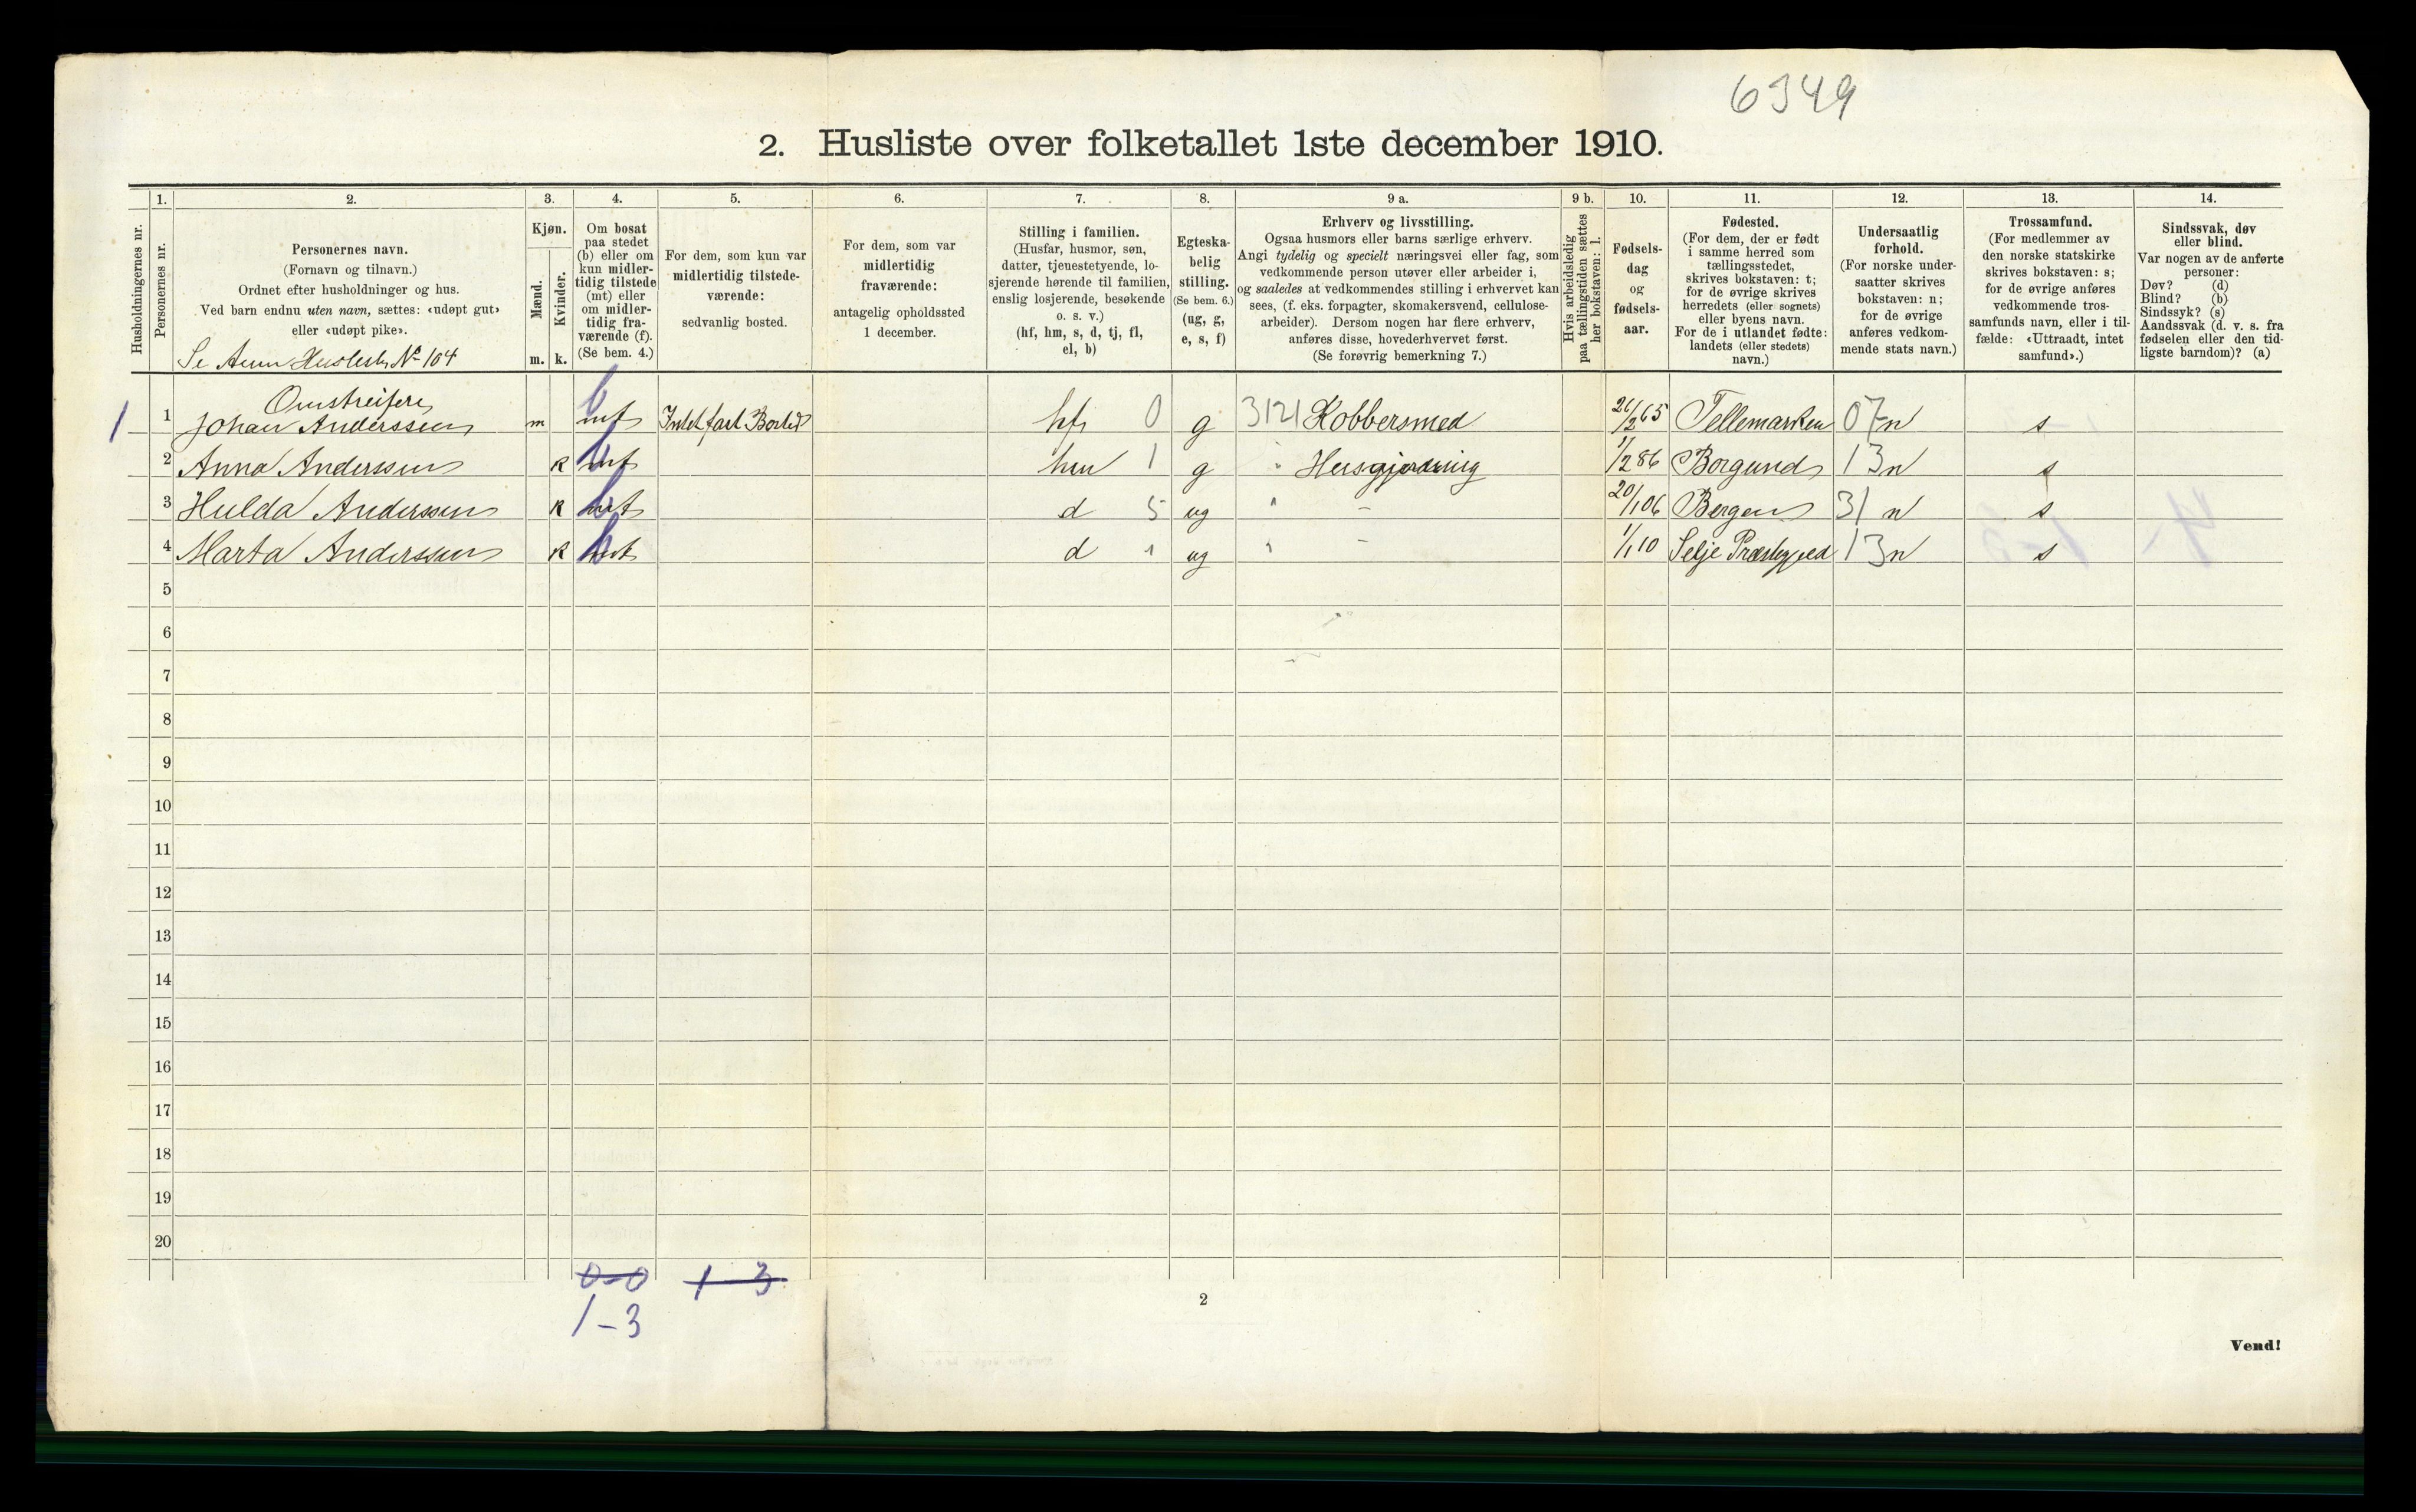 6349
2. Husliste over folketallet 1ste december 1910.
Husholdningernes nr.
1.
Personernes nr.
2.
Personernes navn.
(Fornavn og tilnavn.)
Ordnet efter husholdninger og hus.
Ved barn endnu uten navn, sættes: «udøpt gut»
eller «udøpt pike».
Se Husliste No 104
3.
Kjøn.
Mænd.
Kvinder.
m. k.
4.
Om bosat
paa stedet
(b) eller om
kun midler-
tidig tilstede
(mt) eller
om midler-
tidig fra-
værende (f).
(Se bem. 4.)
5.
For dem, som kun var
midlertidig tilstede-
værende:
sedvanlig bosted.
6.
For dem, som var
midlertidig
fraværende:
antagelig opholdssted
1 december.
7.
Stilling i familien.
(Husfar, husmor, søn,
datter, tjenestetyende, lo-
sjerende hørende til familien,
enslig losjerende, besøkende
o. s. v.)
(hf, hm, s, d, tj, fl,
el, b)
8.
Egteska-
belig
stilling.
(Se bem. 6.)
(ug, g,
e, s, f)
9 a.
Erhverv og livsstilling.
Ogsaa husmors eller barns særlige erhverv.
Angi tydelig og specielt næringsvei eller fag, som
vedkommende person utøver eller arbeider i,
og saaledes at vedkommendes stilling i erhvervet kan
sees, (f. eks. forpagter, skomakersvend, cellulose-
arbeider). Dersom nogen har flere erhverv,
anføres disse, hovederhvervet først.
(Se forøvrig bemerkning 7.)
9 b.
Hvis arbeidsledig
paa tællingstiden sættes
her bokstaven: l.
10.
Fødsels-
dag
og
fødsels-
aar.
11.
Fødested.
(For dem, der er født
i samme herred som
tællingsstedet,
skrives bokstaven: t;
for de øvrige skrives
herredets (eller sognets)
eller byens navn.
For de i utlandet fødte:
landets (eller stedets)
navn.)
12.
Undersaatlig
forhold.
(For norske under-
saatter skrives
bokstaven: n;
for de øvrige
anføres vedkom-
mende stats navn.)
13.
Trossamfund.
(For medlemmer av
den norske statskirke
skrives bokstaven: s;
for de øvrige anføres
vedkommende tros-
samfunds navn, eller i til-
fælde: «Uttraadt, intet
samfund».)
14.
Sindssvak, døv
eller blind.
Var nogen av de anførte
personer:
Døv? (d)
Blind? (b)
Sindssyk? (s)
Aandssvak (d. v. s. fra
fødselen eller den tid-
ligste barndom)? (a)
Omstreifere
1 1 Johan Anderssen m mt b Intet fast Bosted hf 0 g 3121 Kobbersmed 26/2 65 Tellemarken 07 n s
2 Anna Anderssen k mt b hm 1 g " Husgjerning 1/2 86 Borgund 13 n s
3 Hulda Anderssen k mt b d 5 ug " - 20/1 06 Bergen 31 n s
4 Marta Anderssen k mt b d 1 ug " - 1/1 10 Selje Prestegjeld 13 n s
5
6
7
8
9
10
11
12
13
14
15
16
17
18
19
20
0-0 1-3
1-3
2
Vend!